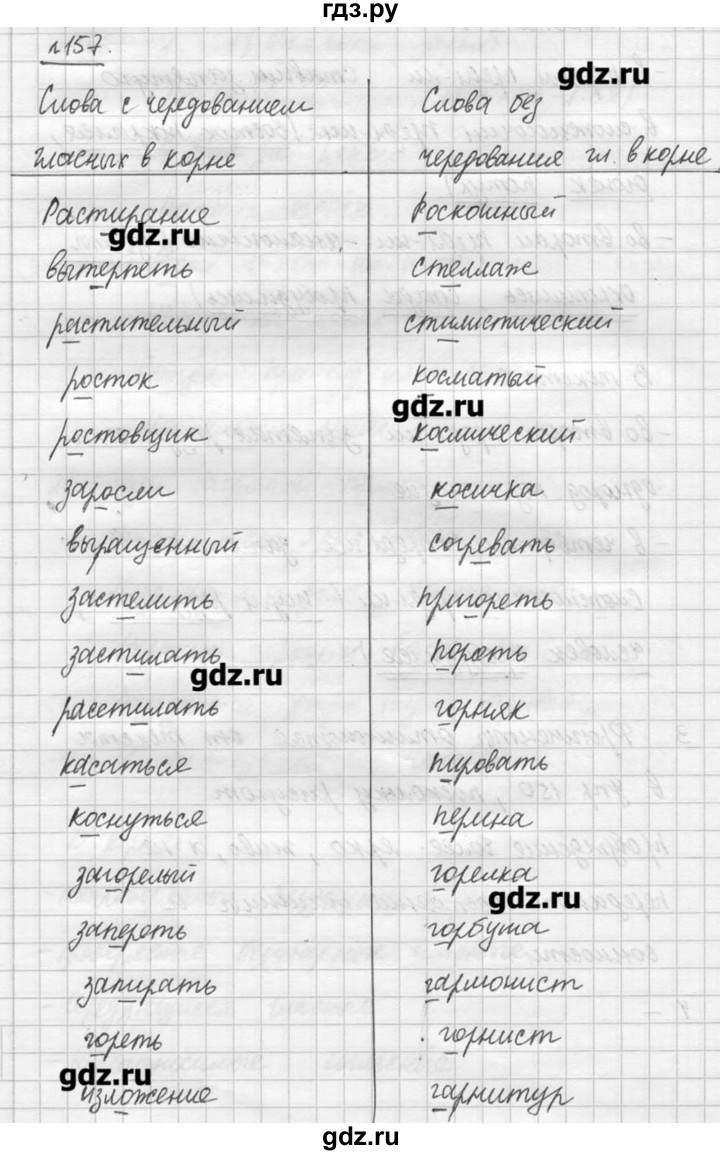 гдз.ру
№157.
gdz.ru
Слова с чередованием
гласных в корне
Слова без
чередования гл. в корне
Растирание
gdz.ru
вытерпеть
растительный
росток
ростовщик
заросли
выращенный
застелить
застилать
gdz.ru
расстилать
касаться
коснуться
загорелый
запереть
запирать
гореть
gdz.ru
изложение
Роскошный
стеллаж
стилистический
косматый
gdz.ru
космический
косичка
согревать
пригореть
пороть
горняк
пировать
перина
горелка
gdz.ru
горбуша
гармонист
горнист
гарнитур
gdz.ru